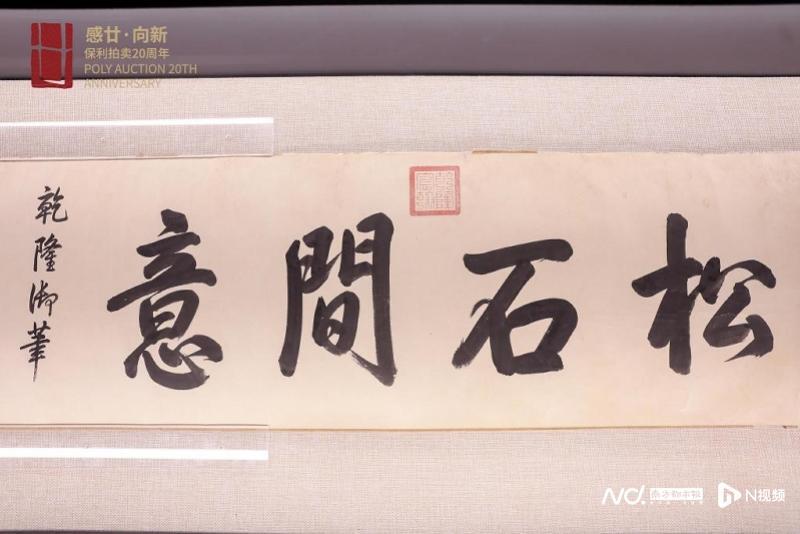 感廿·向新
保利拍卖20周年
POLY AUCTION 20TH
ANNIVERSARY
松石間意
乾隆御筆
南方都市报
N视频